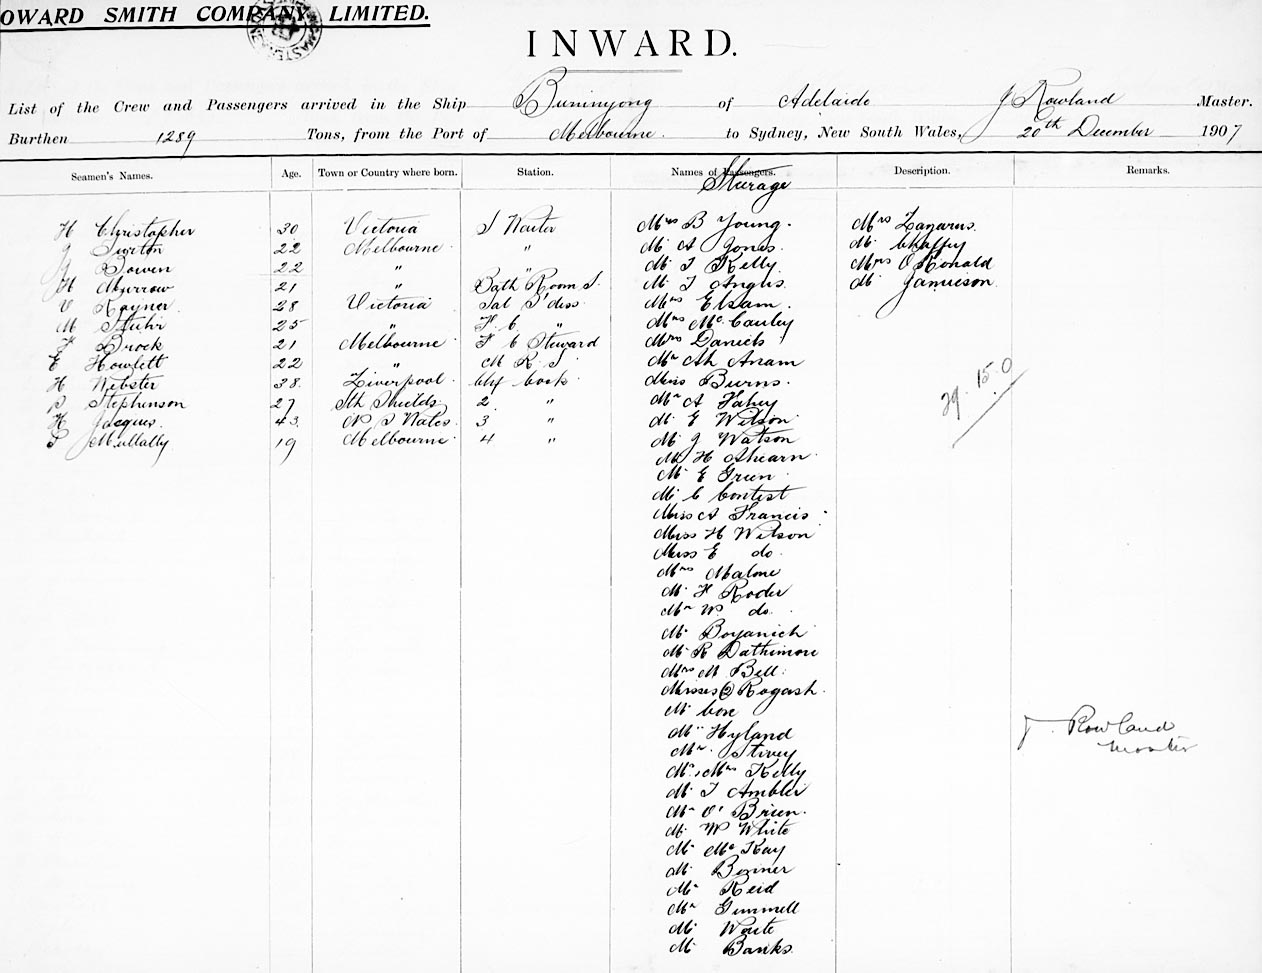 OWARD SMITH COMPANY LIMITED.
INWARD.
List of the Crew and Passengers arrived in the Ship Buninyong of Adelaide J Rowland Master.
Burthen 1289 Tons, from the Port of Melbourne. to Sydney, New South Wales, 20th December 1907
Seamen's Names. Age. Town or Country where born. Station. Names of Passengers. Description. Remarks.
Steerage
H Christopher 30 Victoria S Waiter Mrs B Young. Mrs Lazarus.
J Turton 22 Melbourne " Mr A Jones. Mr Chaffey
J Bowen 22 " " Mr T Kelly Mrs O'Ronald
H Murrow 21 " Bath Room S. Mr T Anglis. Mr Jamieson
V Rayner 28 Victoria Sal S'dess Mrs Elsam.
M Stuhr 25 " F. C " Mrs McCauley
F Brock 21 Melbourne F C Steward Mrs Daniels
E Howlett 22 " M R. S Mr Ah Anam
H Webster 38. Liverpool. Chf Cook. Miss Burns.
S Stephenson 27 Sth Shields 2 " Mr A Fahey 29. 15. 0
H Jacques. 43. N S Wales. 3 " Mr E Wilson
S Mullally 19 Melbourne 4 " Mr J Watson
Mr H Ahearn
Mr E Green
Mr C Contest
Miss A Francis
Miss H Wilson
Miss E do.
Mrs Malone
Mr H Roder
Mr W. do.
Mr Boyanich
Mr R Dathimore
Mrs M Bell.
Misses (2) Rogash.
Mr Cove
Mr Hyland
Mr Stivey
Mr, Mrs Kelly
Mr T Ambler
Mr O'Brien.
Mr W White
Mr McKay
Mr Bonner
Mr Reid
Mr Gemmell
Mr Waite
Mr Banks.
J. Rowland
Master